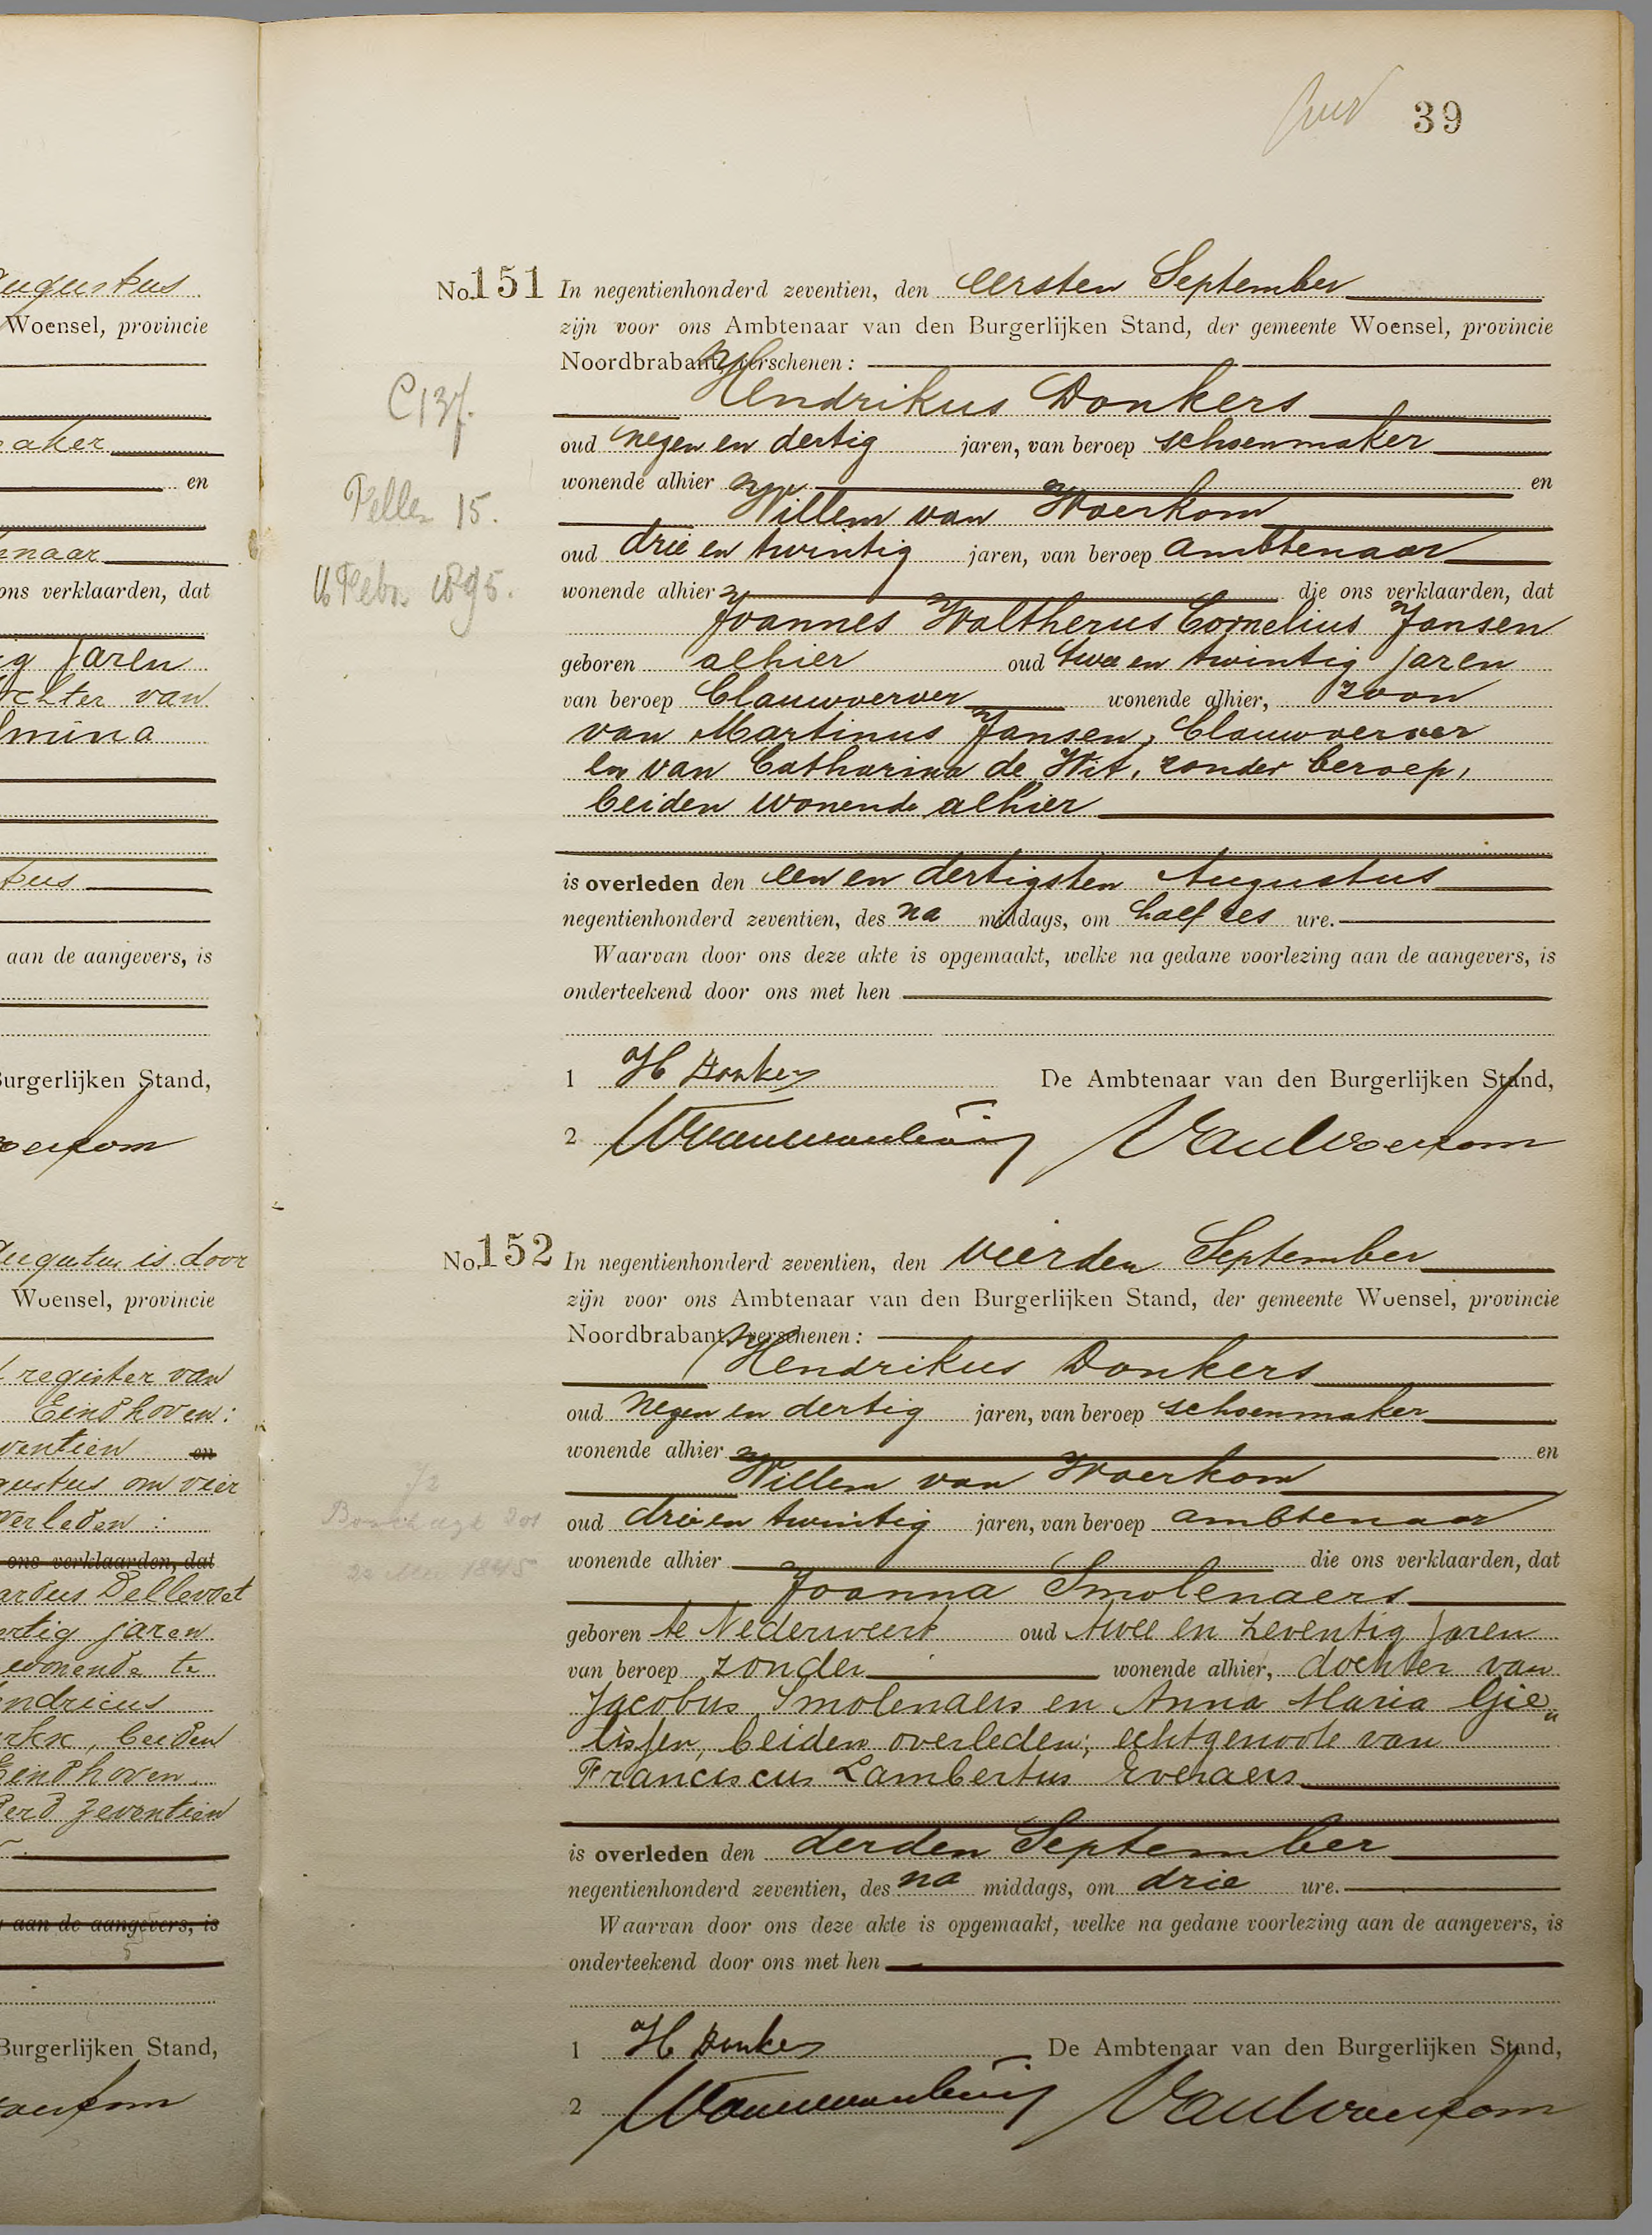 39
Augustus
Woensel, provincie
aker
en
naar
ons verklaarden, dat
ig jaren
ochter van
lmina
tus
aan de aangevers, is
Burgerlijken Stand,
oerkom
Augustus is door
Woensel, provincie
register van
Eindhoven:
ventien en
gustus om vier
verleden:
ons verklaarden, dat
ardus Dellevoet
ertig jaren
wonende te
endricus
rkx, beiden
Eindhoven
derd zeventien
aan de aangevers, is
Burgerlijken Stand,
oerkom
No. 151 In negentienhonderd zeventien, den eersten September
zijn voor ons Ambtenaar van den Burgerlijken Stand, der gemeente Woensel, provincie
Noordbrabant, verschenen:
C137.
Hendrikus Donkers
oud negen en dertig jaren, van beroep schoenmaker
wonende alhier en
15.
Willem van Woerkom
oud drie en twintig jaren, van beroep ambtenaar
16 Febr. 1895.
wonende alhier die ons verklaarden, dat
Joannes Waltherus Cornelius Jansen
geboren alhier oud twee en twintig jaren
van beroep blauwverver wonende alhier, zoon
van Martinus Jansen, blauwverver
en van Catharina de Wit, zonder beroep,
beiden wonende alhier
is overleden den een en dertigsten Augustus
negentienhonderd zeventien, des na middags, om half zes ure.
Waarvan door ons deze akte is opgemaakt, welke na gedane voorlezing aan de aangevers, is
onderteekend door ons met hen
1 H Donkers De Ambtenaar van den Burgerlijken Stand,
2 VanWoerkom
No. 152 In negentienhonderd zeventien, den vierden September
zijn voor ons Ambtenaar van den Burgerlijken Stand, der gemeente Woensel, provincie
Noordbrabant, verschenen:
Hendrikus Donkers
oud negen en dertig jaren, van beroep schoenmaker
wonende alhier en
Willem van Woerkom
Boschdijk 201
oud drie en twintig jaren, van beroep ambtenaar
22 Mei 1845
wonende alhier die ons verklaarden, dat
Joanna Smolenaers
geboren te Nederweert oud twee en zeventig jaren
van beroep zonder wonende alhier, dochter van
Jacobus Smolenaers en Anna Maria Gie„
lissen, beiden overleden; echtgenoote van
Franciscus Lambertus Everaers
is overleden den derden September
negentienhonderd zeventien, des na middags, om drie ure.
Waarvan door ons deze akte is opgemaakt, welke na gedane voorlezing aan de aangevers, is
onderteekend door ons met hen
1 H Donkers De Ambtenaar van den Burgerlijken Stand,
2 VanWoerkom